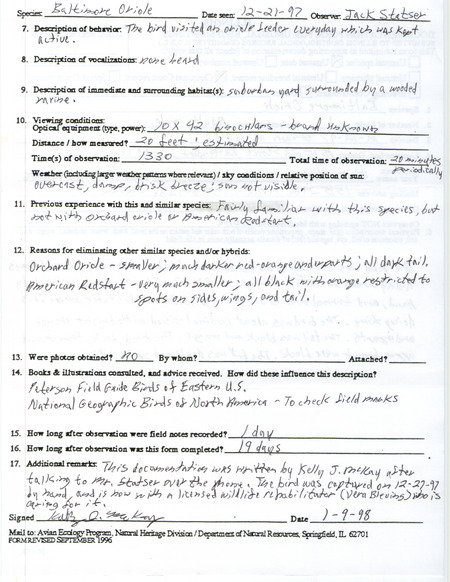 Species: Baltimore Oriole Date seen: 12-21-97 Observer: Jack Statser
7. Description of behavior: The bird visited an oriole feeder everyday which was kept
active.
8. Description of vocalizations: none heard
9. Description of immediate and surrounding habitat(s): suburban yard surrounded by a wooded
ravine.
10. Viewing conditions:
Optical equipment (type, power): 10 X 42 binoculars - brand unknown
Distance / how measured? 20 feet; estimated
Time(s) of observation: 1330 Total time of observation: 20 minutes
periodically
Weather (including larger weather patterns where relevant) / sky conditions / relative position of sun:
overcast, damp, brisk breeze; sun not visible.
11. Previous experience with this and similar species: Fairly familiar with this species, but
not with orchard oriole or American Redstart.
12. Reasons for eliminating other similar species and/or hybrids:
Orchard Oriole - smaller; much darker red-orange underparts; all dark tail.
American Redstart - very much smaller; all black with orange restricted to
spots on sides, wings, and tail.
13. Were photos obtained? NO By whom? Attached?
14. Books & illustrations consulted, and advice received. How did these influence this description?
Peterson Field Guide Birds of Eastern U.S.
National Geographic Birds of North America - To check field marks
15. How long after observation were field notes recorded? 1 day
16. How long after observation was this form completed? 19 days
17. Additional remarks: This documentation was written by Kelly J. McKay after
talking to Mr. Statser over the phone. The bird was captured on 12-27-97
by hand, and is now with a licensed wildlife rehabilitator (Vera Blevins) who is
caring for it.
Signed Kelly J. McKay Date 1-9-98
Mail to: Avian Ecology Program, Natural Heritage Division / Department of Natural Resources, Springfield, IL 62701
FORM REVISED SEPTEMBER 1996